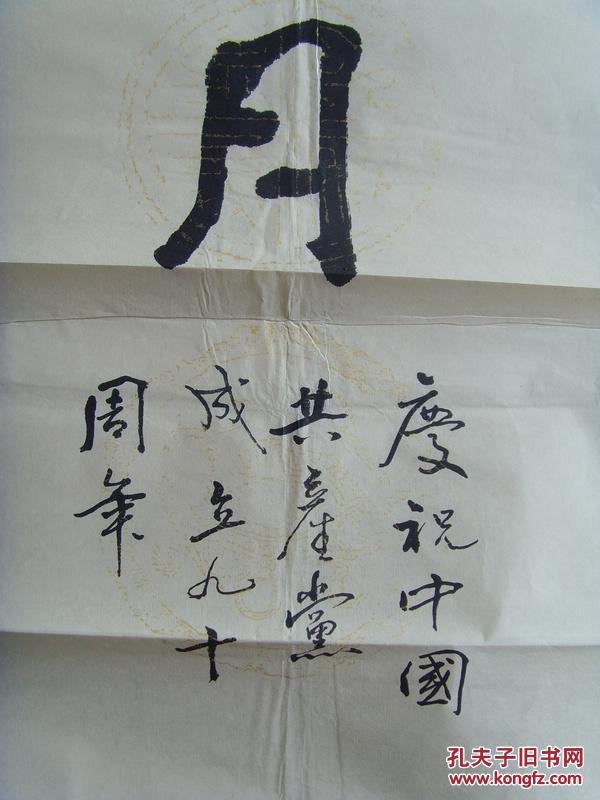 月
慶祝中國
共產黨
成立九十
周年
孔夫子旧书网
www.kongfz.com